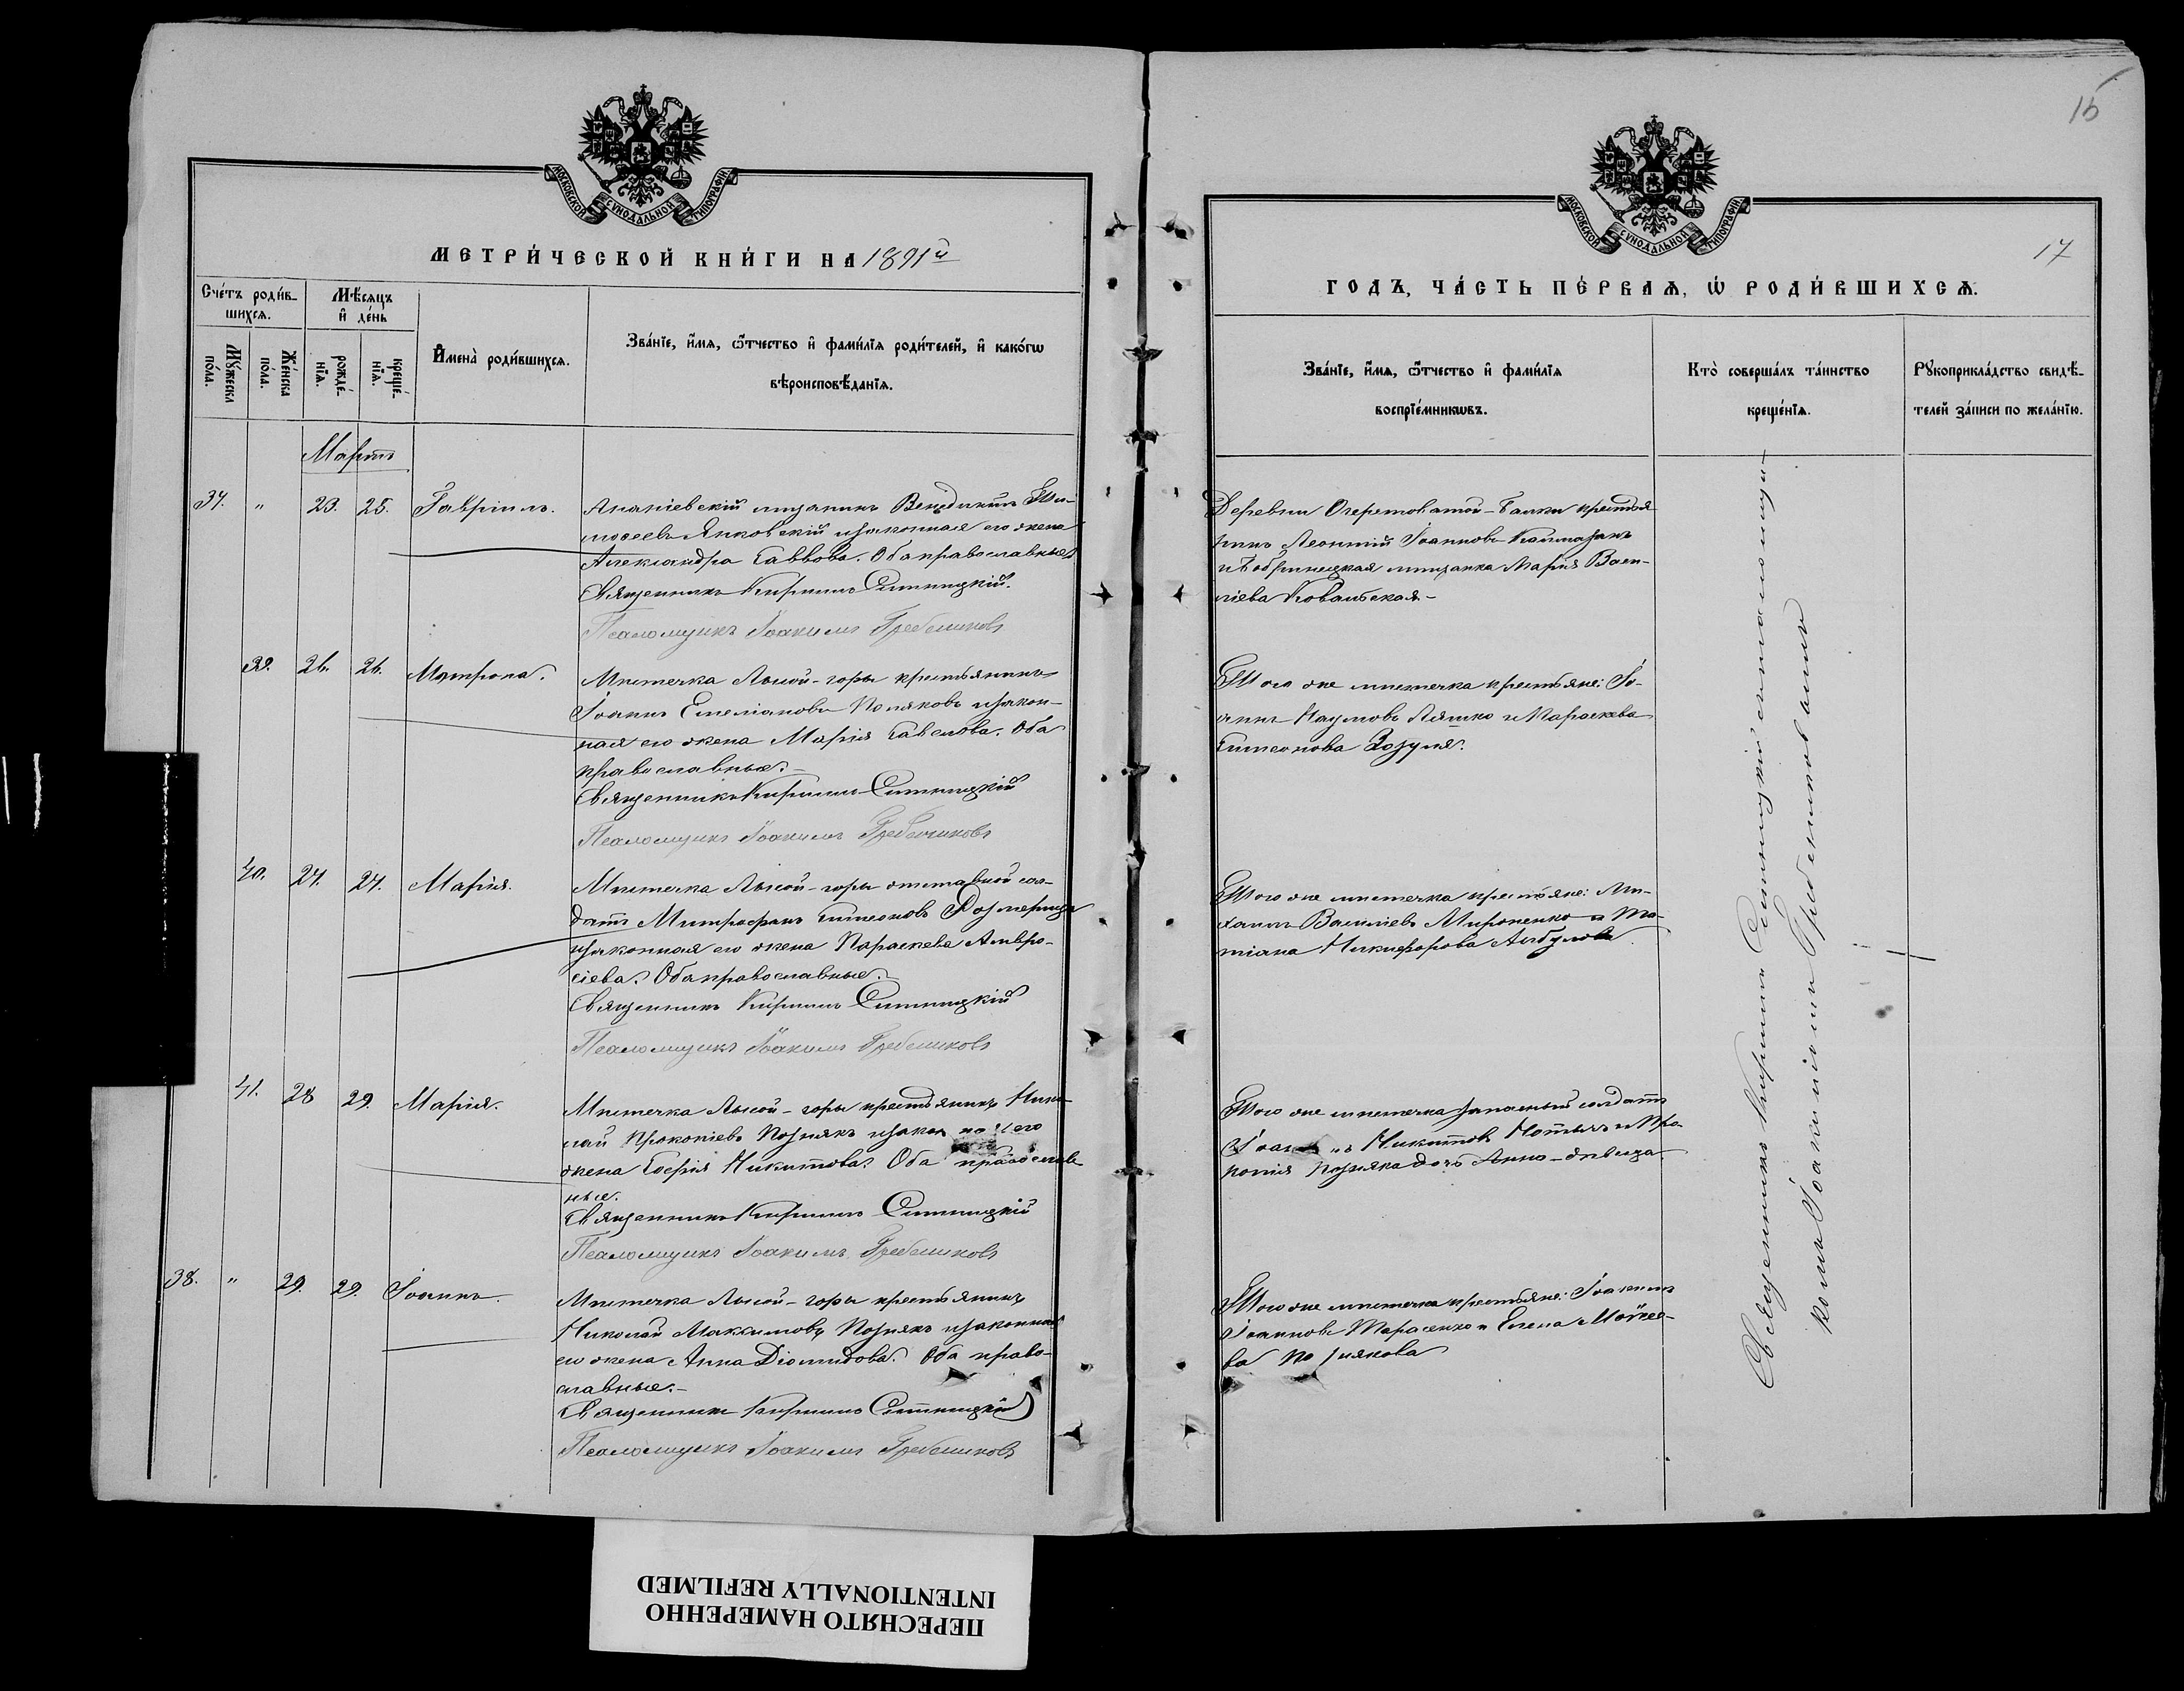 15
МОСКОВСКОЙ СѴНОДАЛЬНОЙ ТИПОГРАФІИ
МЕТРИ́ЧЕСКОЙ КНИ́ГИ НА 1891й
Сче́тъ роди́в-
шихсѧ.
Мѣ́сѧцъ
и҆ де́нь
Мꙋ́жеска
по́ла.
Же́нска
по́ла.
рожде́-
нїѧ.
креще́-
нїѧ.
И҆мена̀ роди́вшихсѧ.
Зва́нїе, и҆́мѧ, ѻ҆́тчество и҆ фами́лїѧ роди́телей, и҆ како́гѡ
вѣроисповѣ́данїѧ.
Мартъ
37. " 23. 25. Гавріилъ.
Ананіевскій мѣщанинъ Венедиктъ Ти-
моѳеевъ Янковскій и законная его жена
Александра Саввова. Оба православные
Священникъ Кириллъ Ситницкій.
Псаломщикъ Іоакимъ Гребенниковъ
39. 26. 26. Матрона.
Мѣстечка Лысой-горы крестьянинъ
Іоаннъ Емеліановъ Поляковъ и закон-
ная его жена Марія Савелова. Оба
православные.-
Священникъ Кириллъ Ситницкій
Псаломщикъ Іоакимъ Гребенниковъ
40. 27. 27. Марія.
Мѣстечка Лысой-горы отставной сол-
датъ Митрофанъ Симеоновъ Розмерица
и законная его жена Параскева Амвро-
сіева. Оба православные.
Священникъ Кириллъ Ситницкій
Псаломщикъ Іоакимъ Гребенниковъ
41. 28 29. Марія.
Мѣстечка Лысой-горы крестьянинъ Нико-
лай Прокопіевъ Познякъ и законная его
жена Софія Никитова. Оба православ-
ные.
Священникъ Кириллъ Ситницкій
Псаломщикъ Іоакимъ Гребенниковъ
38. " 29. 29. Іоаннъ.
Мѣстечка Лысой-горы крестьянинъ
Николай Максимовъ Познякъ и законная
его жена Анна Діомидова. Оба право-
славные.-
Священникъ Кириллъ Ситницкій
Псаломщикъ Іоакимъ Гребенниковъ
МОСКОВСКОЙ СѴНОДАЛЬНОЙ ТИПОГРАФІИ
17
ГОДЪ, ЧА́СТЬ ПЕ́РВАѦ, Ѡ҆ РОДИ́ВШИХСѦ.
Зва́нїе, и҆́мѧ, ѻ҆́тчество и҆ фами́лїѧ
воспрїе́мникѡвъ.
Кто̀ соверша́лъ та́инство
креще́нїѧ.
Рꙋкоприкла́дство свидѣ́-
телей за́писи по жела́нїю.
Деревни Очеретоватой-Балки крестья-
нинъ Леонтій Іоанновъ Каймазанъ
и Бобринецкая мѣщанка Марія Васи-
ліева Ковальская-
Того же мѣстечка крестьяне: Іо-
аннъ Наумовъ Ляшко и Параскева
Симеонова Зозуля.
Того же мѣстечка крестьяне: Ми-
хаилъ Василіевъ Мироненко и Та-
тіана Никифорова
Того же мѣстечка запасный солдатъ
Іоаннъ Никитовъ и Про-
копія Позняка дочь Анна-дѣвица
Того же мѣстечка крестьяне: Іоакимъ
Іоанновъ Тарасенко и Елена Моѵсее-
ва Познякова
Священникъ Кириллъ Ситницкій съ псаломщи-
комъ Іоакимомъ Гребенниковымъ
ПЕРЕСНЯТО НАМЕРЕННО
INTENTIONALLY REFILMED